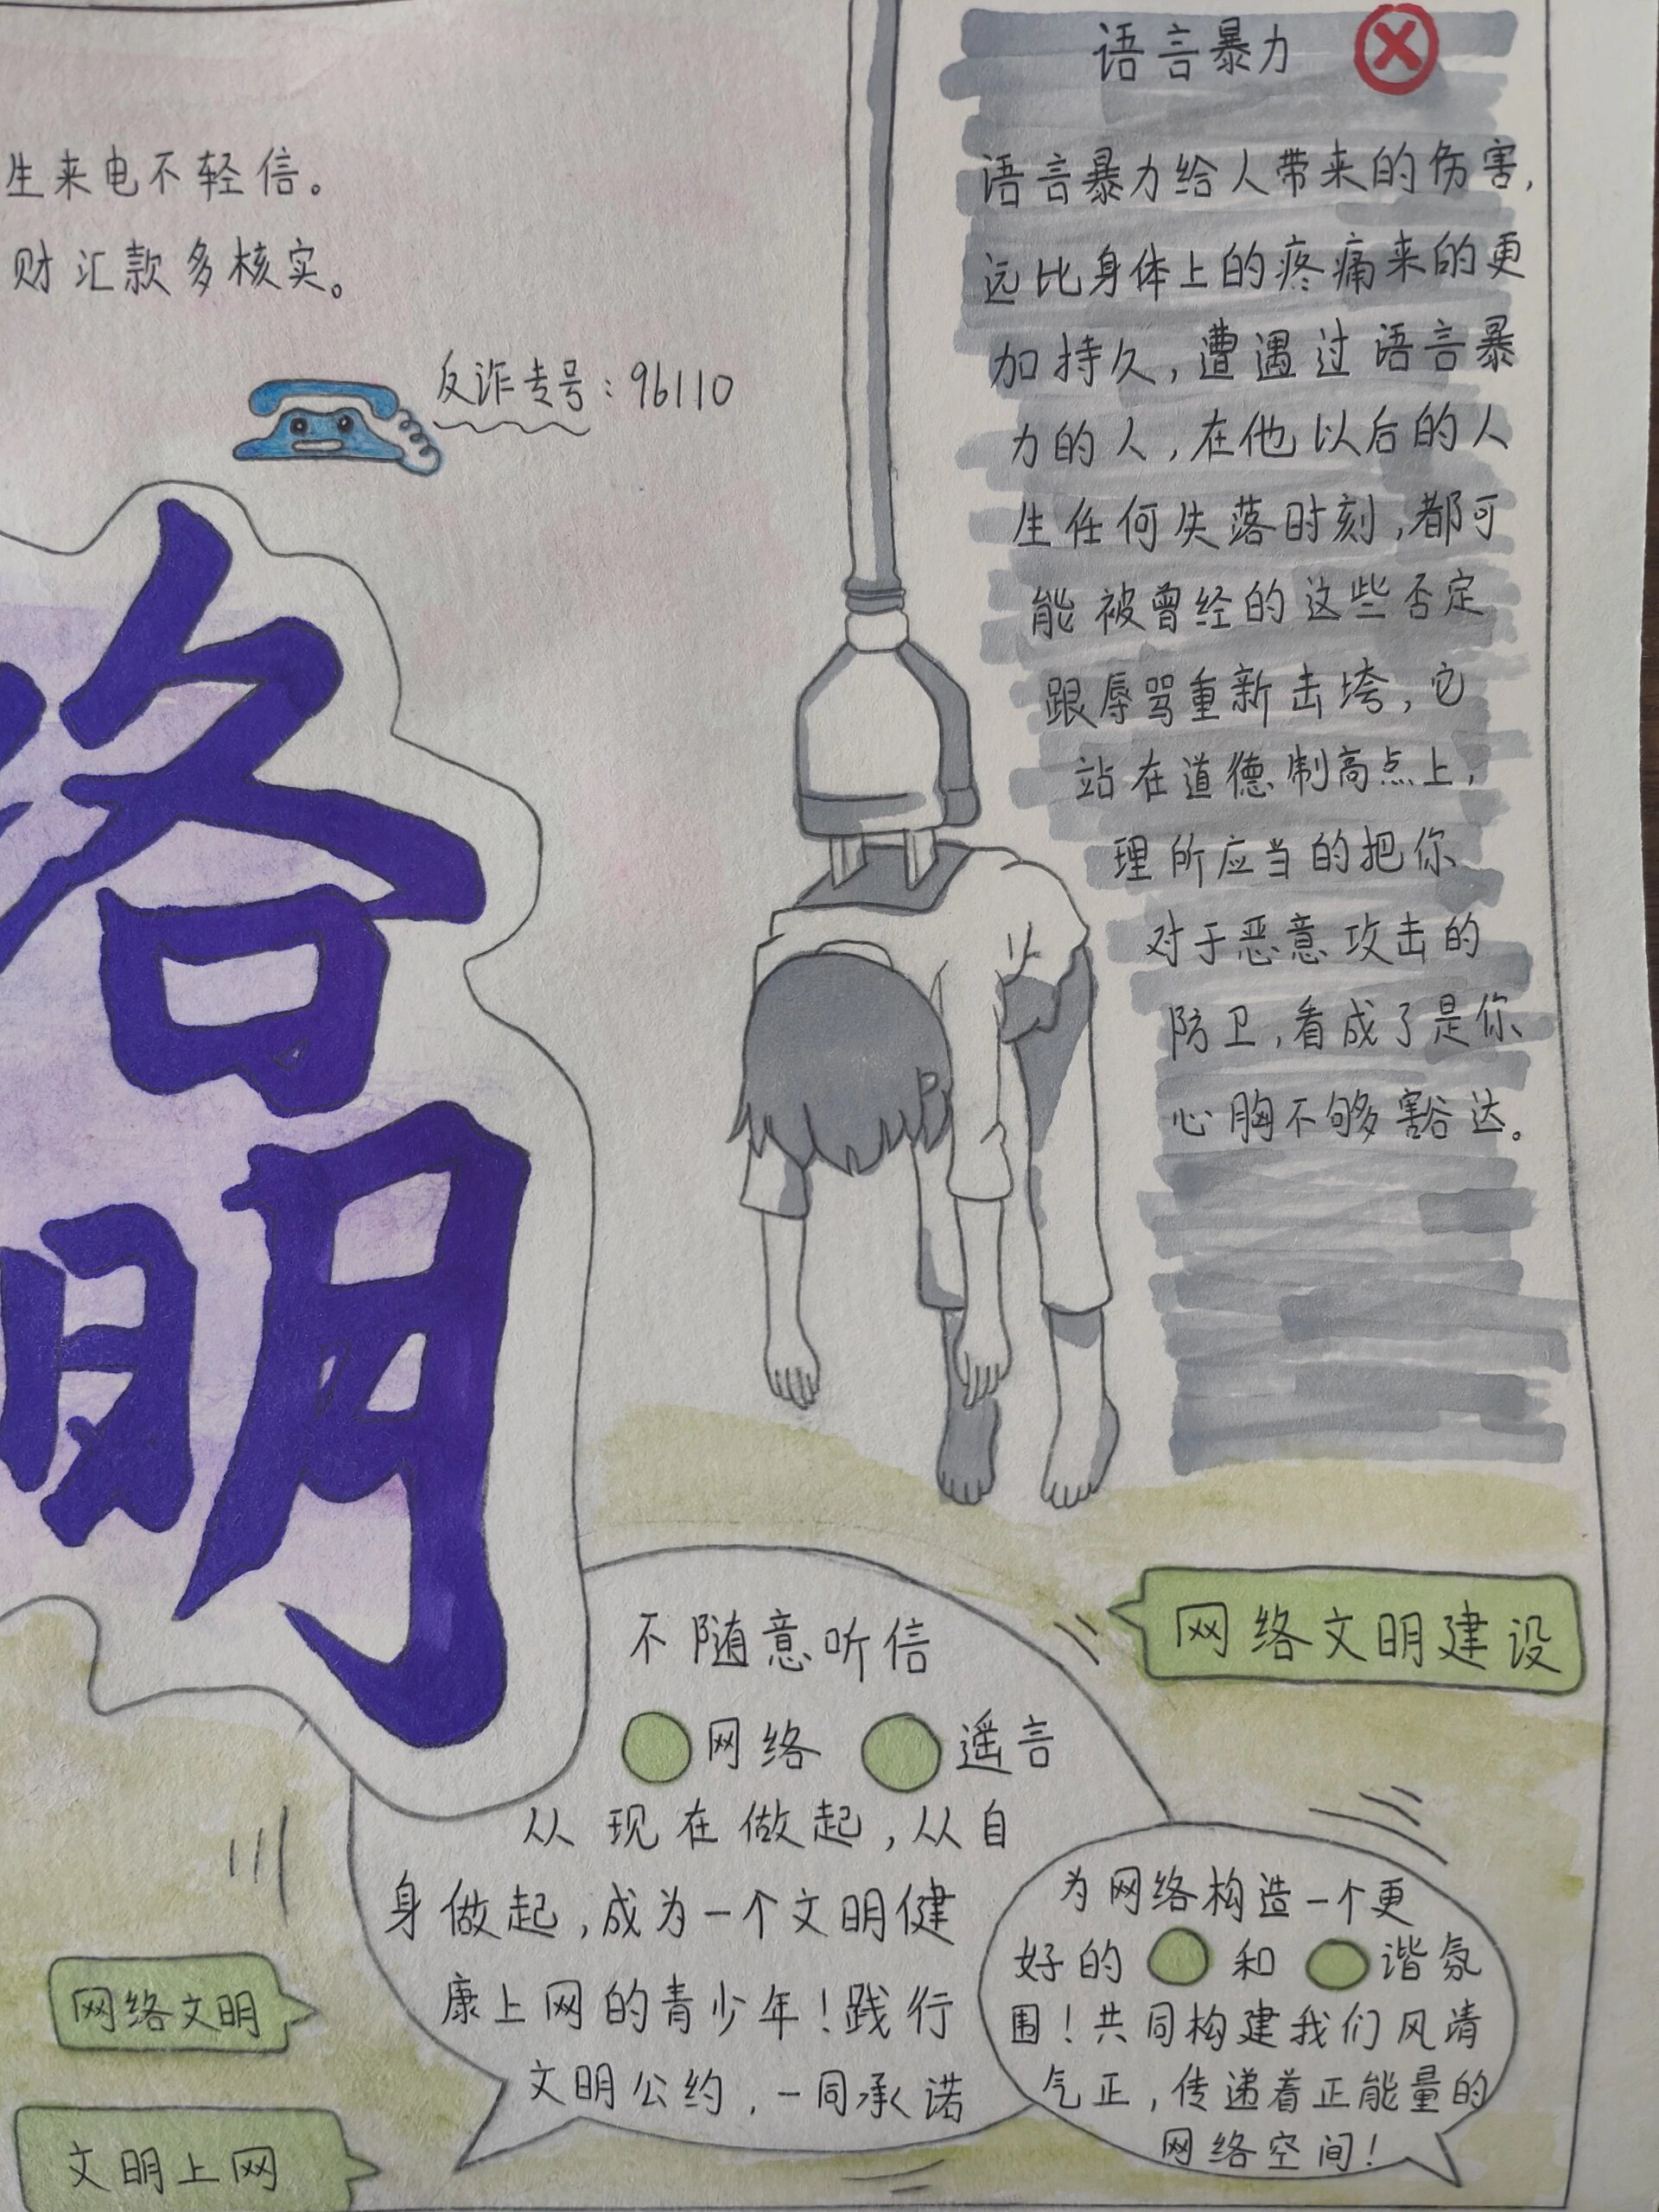 生来电不轻信。
财汇款多核实。
反诈专号：96110
络
明
明
语言暴力
语言暴力给人带来的伤害，
远比身体上的疼痛来的更
加持久，遭遇过语言暴
力的人，在他以后的人
生任何失落时刻，都可
能被曾经的这些否定
跟辱骂重新击垮，它
站在道德制高点上，
理所应当的把你
对于恶意攻击的
防卫，看成了是你
心胸不够豁达。
网络文明建设
不随意听信
网络 遥言
从现在做起，从自
身做起，成为一个文明健
康上网的青少年！践行
文明公约，一同承诺
为网络构造一个更
好的 和 谐氛
围！共同构建我们风清
气正，传递着正能量的
网络空间！
网络文明
文明上网